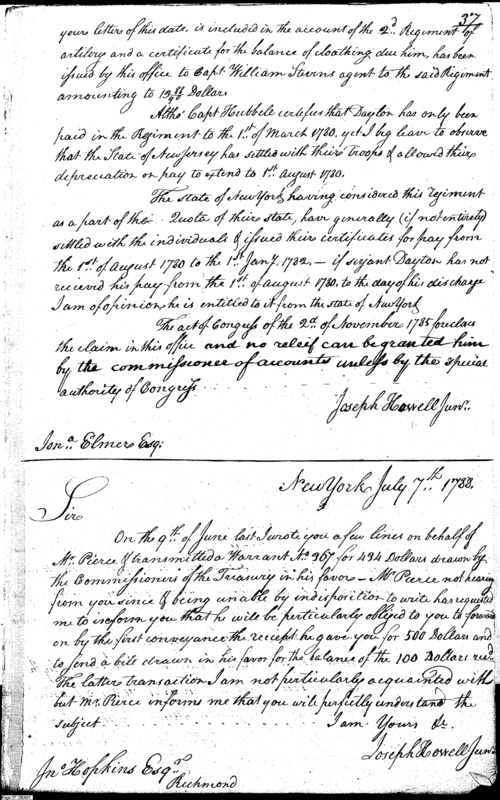 37
your letter of this date, is included in the account of the 2d Regiment of
artilery and a certificate for the balance of cloathing due him, has been
issued by this office to Capt William Stevens agent to the said Regiment
amounting to Dollars
Altho' Capt Hubbele certifies that Dayton has only been
paid in the Regiment to the 1st of March 1780, yet I beg leave to observe
that the State of New Jersey has settled with their troops & allowed their
depreciation on pay to extend to 1st August 1780.
The state of New York having considered this regiment
as a part of the Quota of their state, have generally (if not entirely)
settled with the individuals & issued their certificates for pay from
the 1st of August 1780 to the 1st Jany. 1782, — if serjant Dayton has not
recieved his pay from the 1st of august 1780, to the day of his discharge
I am of opinion he is entitled to it from the state of New York
The act of Congress of the 2d of November 1785 forecloses
the claim in this office and no releif can be granted him
by the commissioner of accounts unless by the special
authority of Congress.
Joseph Howell Junr.
Jona. Elmer Esq:
New York July 7th 1788.
Sir
On the 9th of June last I wrote you a few lines on behalf of
Mr. Pierce & transmitted a Warrant No. 367 for 494 Dollars drawn by
the Commissioners of the Treasury in his favor — Mr Pierce not hearing
from you since & being unable by indisposition to write has requested
me to inform you that he will be perticularly obliged to you to forward
on by the first conveyance the reciept he gave you for 500 Dollars and
to send a bill drawn in his favor for the balance of the 100 Dollars recd
The latter transaction I am not perticularly acquainted with
but Mr. Pierce informs me that you will perfectly understand the
subject I am Yours &c.
Joseph Howell Junr
Jno. Hopkins Esqr.
Richmond